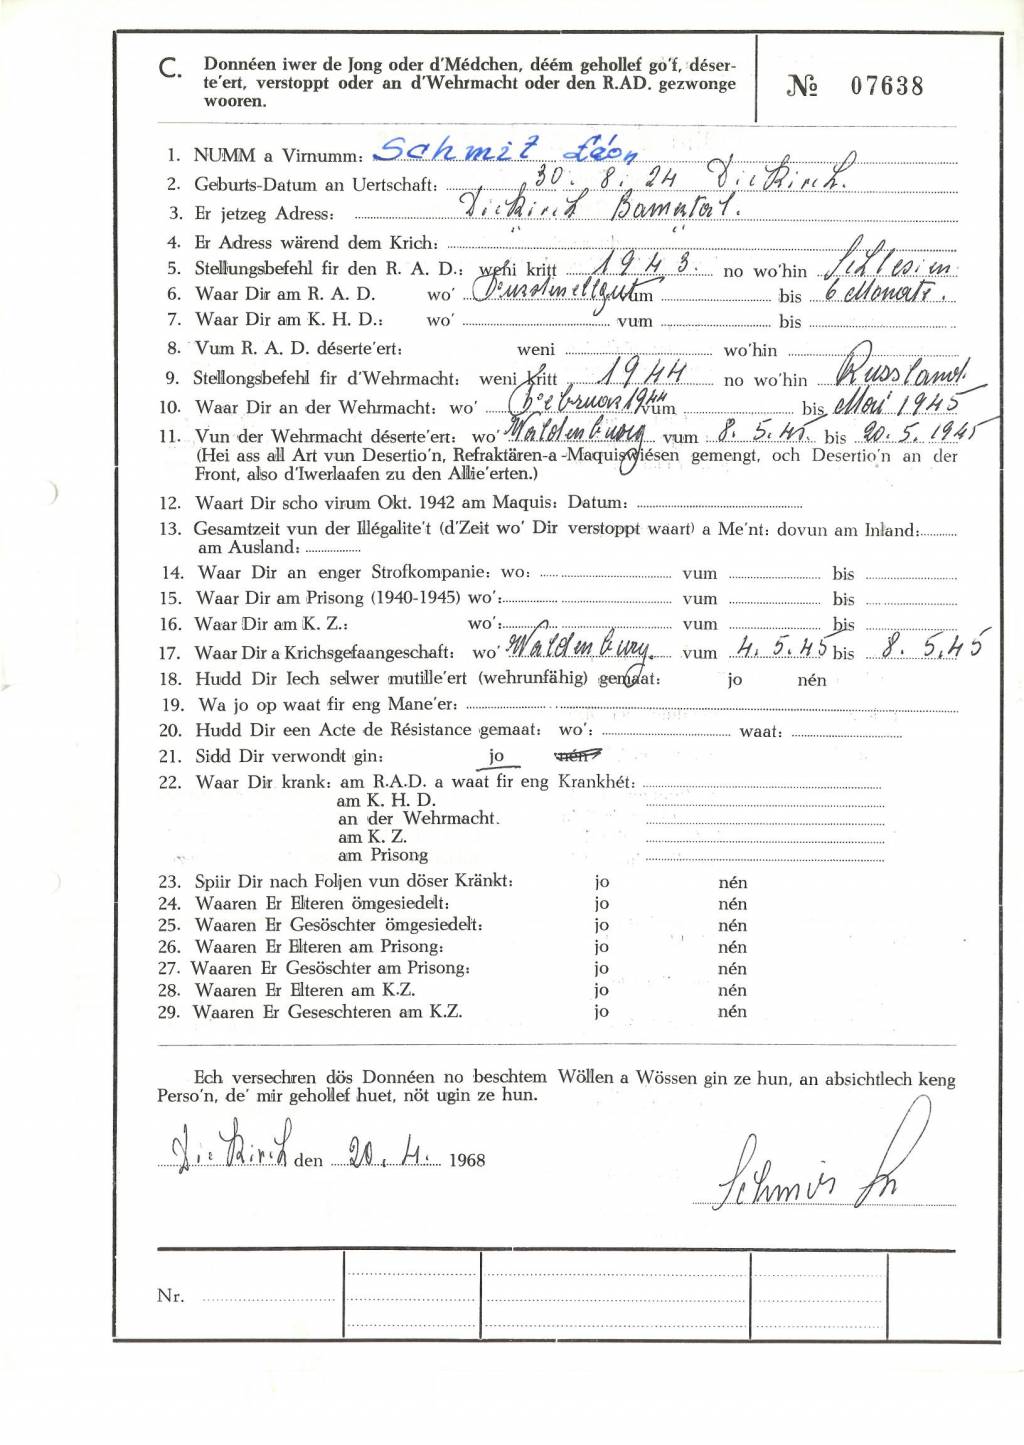 C. Donnéen iwer de Jong oder d'Médchen, déém gehollef go'f, déser-
te'ert, verstoppt oder an d'Wehrmacht oder den R.AD. gezwonge
wooren.
№ 07638
1. NUMM a Virnumm: Schmit Léon
2. Geburts-Datum an Uertschaft: 30. 8. 24 Diekirch.
3. Er jetzeg Adress: Diekirch Bamertal.
4. Er Adress wärend dem Krich: " "
5. Stellungsbefehl fir den R. A. D.: weni kritt 1943. no wo'hin Schlesien
6. Waar Dir am R. A. D. wo' vum bis 6 Monate.
7. Waar Dir am K. H. D.: wo' vum bis
8. Vum R. A. D. déserte'ert: weni wo'hin
9. Stellongsbefehl fir d'Wehrmacht: weni kritt 1944 no wo'hin Russland.
10. Waar Dir an der Wehrmacht: wo' Februar 1944 vum bis Mai 1945
11. Vun der Wehrmacht déserte'ert: wo' Waldenburg vum 8. 5. 45. bis 20. 5. 1945
(Hei ass all Art vun Desertio'n, Refraktären-a -Maquiswiésen gemengt, och Desertio'n an der
Front, also d'Iwerlaafen zu den Allie'erten.)
12. Waart Dir scho virum Okt. 1942 am Maquis: Datum:
13. Gesamtzeit vun der Illégalite't (d'Zeit wo' Dir verstoppt waart) a Me'nt: dovun am Inland:
am Ausland:
14. Waar Dir an enger Strofkompanie: wo: vum bis
15. Waar Dir am Prisong (1940-1945) wo': vum bis
16. Waar Dir am K. Z.: wo': vum bis
17. Waar Dir a Krichsgefaangeschaft: wo' Waldenburg. vum 4. 5. 45 bis 8. 5. 45
18. Hudd Dir Iech selwer mutille'ert (wehrunfähig) gemaat: jo nén
19. Wa jo op waat fir eng Mane'er:
20. Hudd Dir een Acte de Résistance gemaat: wo': waat:
21. Sidd Dir verwondt gin: jo nén
22. Waar Dir krank: am R.A.D. a waat fir eng Krankhét:
am K. H. D.
an der Wehrmacht.
am K. Z.
am Prisong
23. Spiir Dir nach Foljen vun döser Kränkt: jo nén
24. Waaren Er Elteren ömgesiedelt: jo nén
25. Waaren Er Gesöschter ömgesiedelt: jo nén
26. Waaren Er Elteren am Prisong: jo nén
27. Waaren Er Gesöschter am Prisong: jo nén
28. Waaren Er Elteren am K.Z. jo nén
29. Waaren Er Geseschteren am K.Z. jo nén
Ech versechren dös Donnéen no beschtem Wöllen a Wössen gin ze hun, an absichtlech keng
Perso'n, de' mir gehollef huet, nöt ugin ze hun.
Diekirch den 20. 4. 1968
Schmit
Nr.